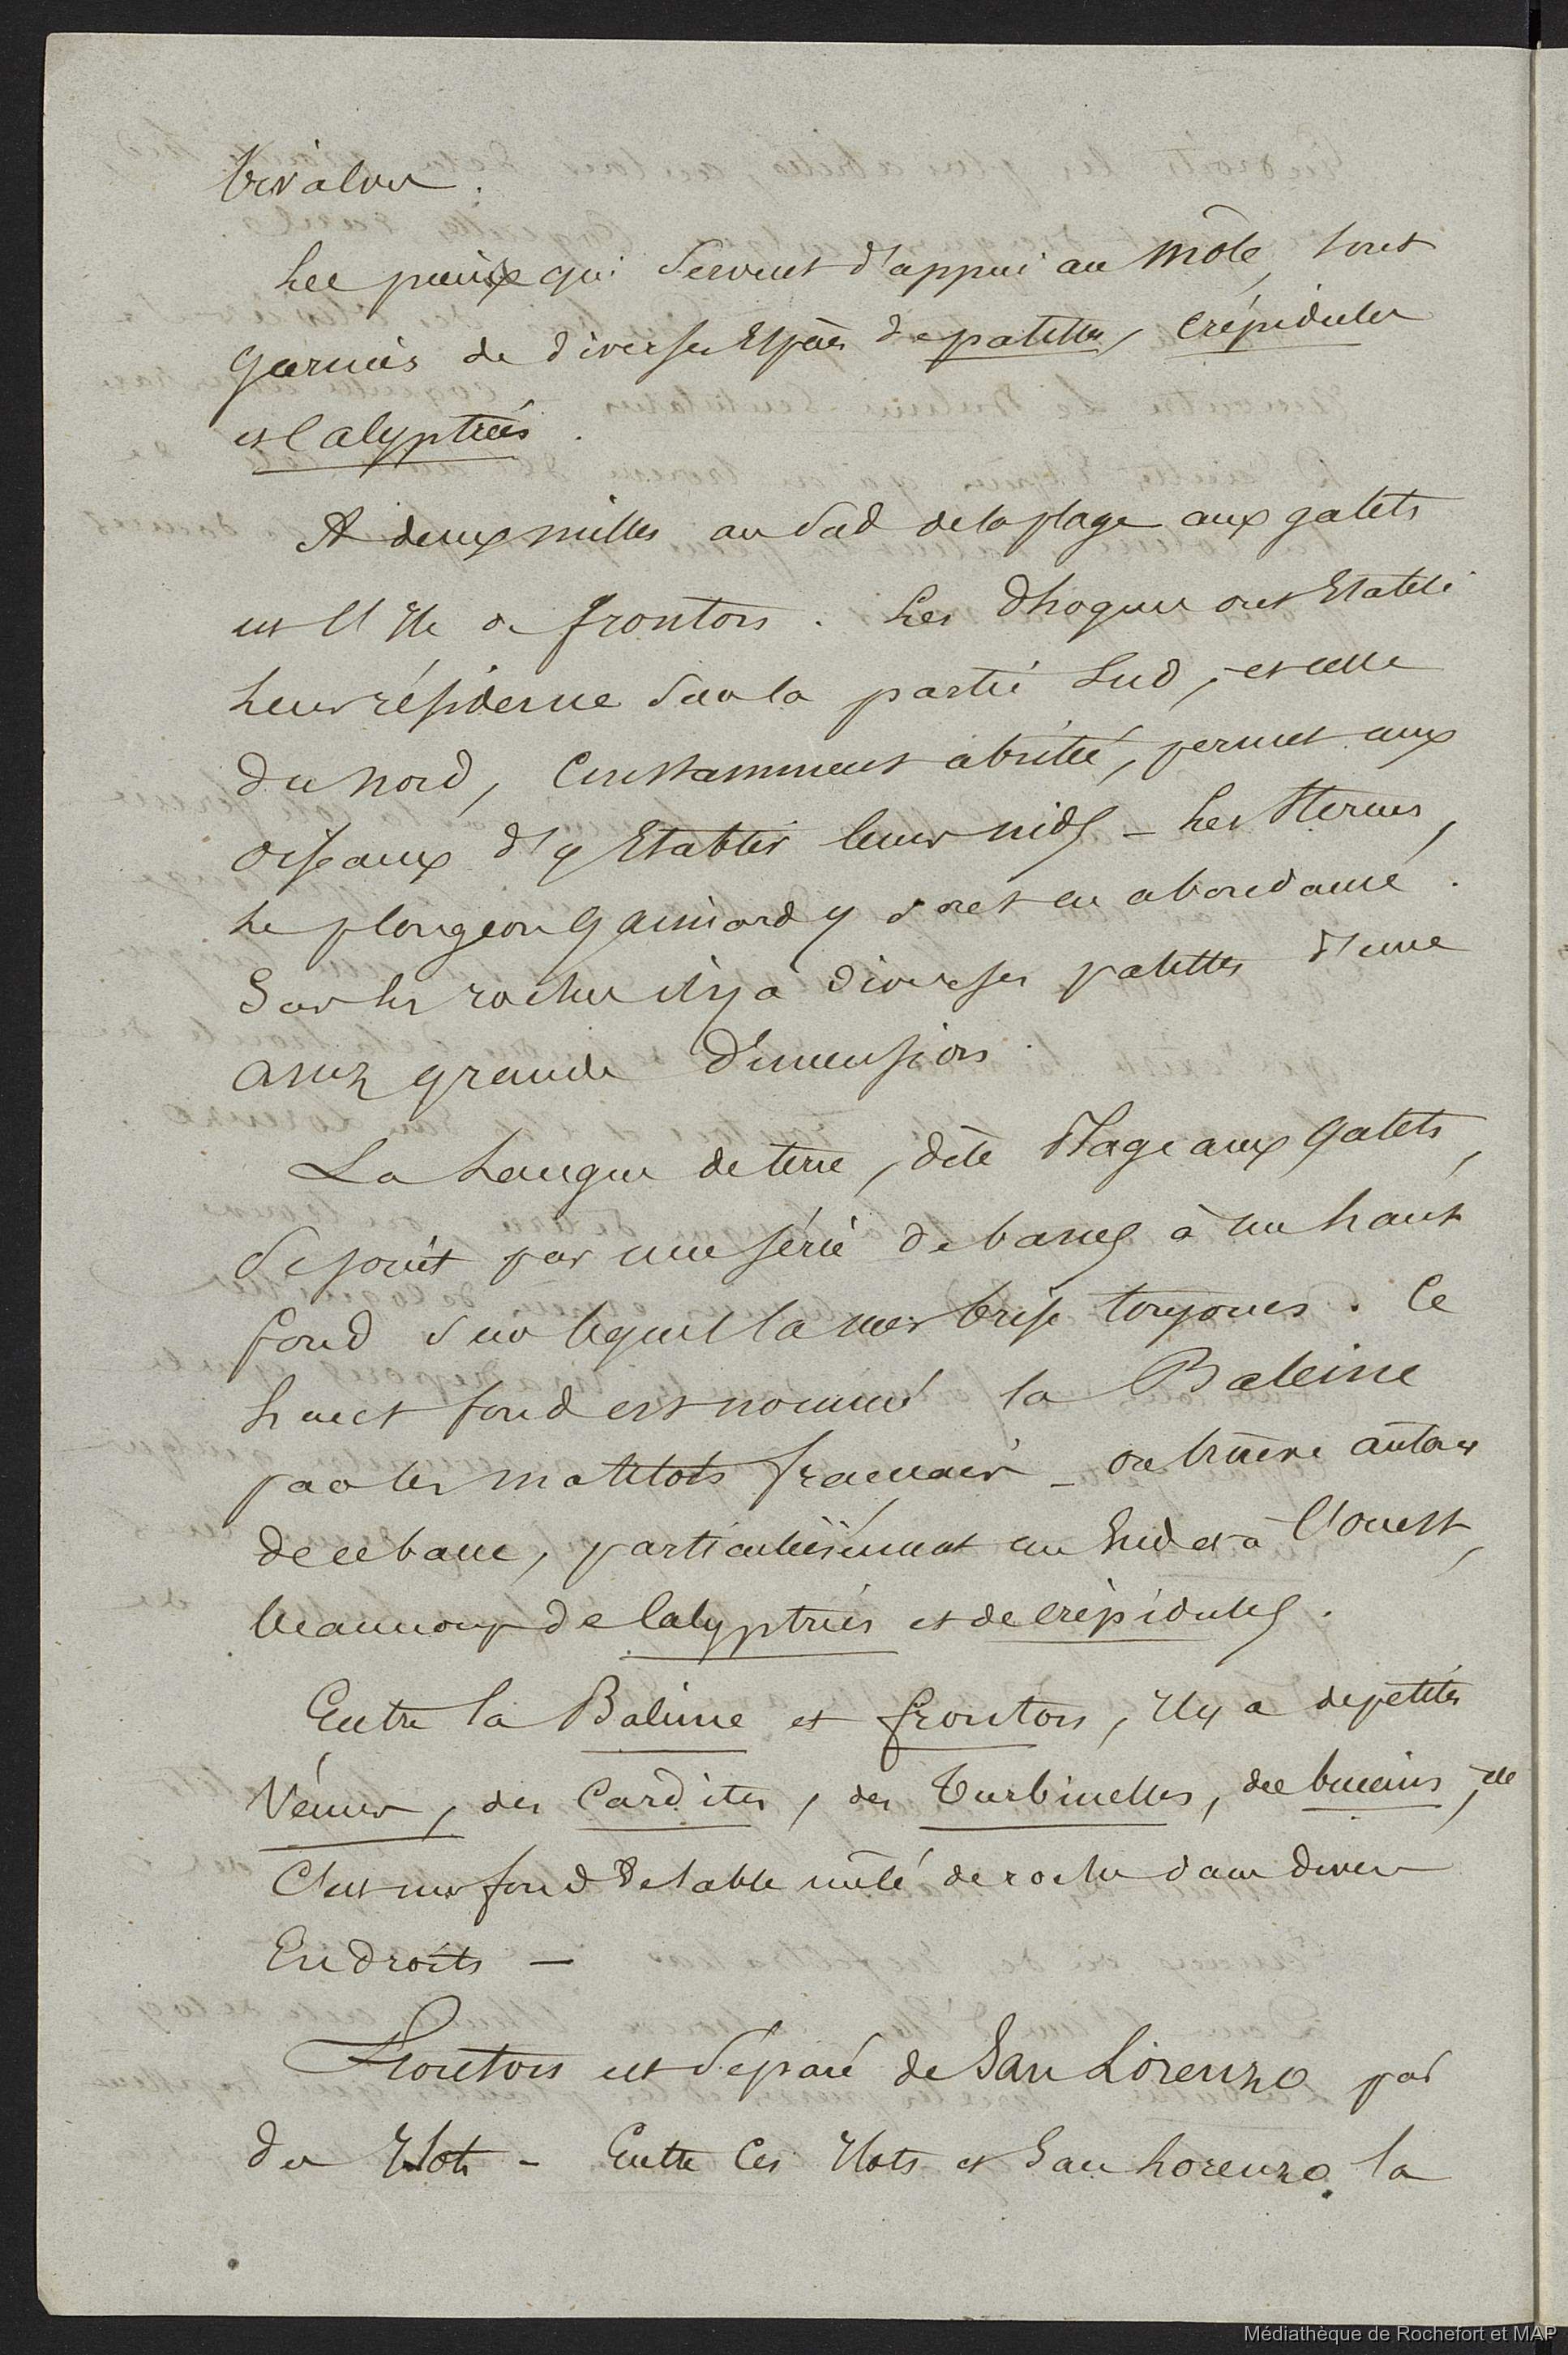 bivalves.
Les pieux qui servent d'appui au môle, sont
garnies de diverses Espèces de patelles, Crépidules
et Calyptrées.
A deux milles au Sud de la plage aux galets
est l'Ile de frontons. Les Phoques ont Etabli
leur résidence sur la partie Sud, et celle
du nord, constamment abritée, permet aux
oiseaux d'y Etablir leurs nids - Les Sternes,
le plongeon Gaimard y sont en abondance.
Sur les roches il y a diverses patelles d'une
assez grande Dimension.
La Langue de terre, dite Plage aux Galets,
se joint par une série de bancs à un haut
fond sur lequel la mer brise toujours. Ce
haut fond est nommé la Baleine
par les matelots français - on trouve autour
de ce banc, particulièrement au Sud et à l'ouest,
beaucoup de Calyptrées et de crépidules.
Entre la Baleine et frontons, Il y a de petites
Vénus, des Cardites, des Turbinelles, des buccins,
C'est un fond de sable mêlé de roches dans divers
Endroits -
Frontons est séparé de San Lorenzo par
des Ilots - Entre Ces Ilots et San Lorenzo, la
Médiathèque de Rochefort et MAP